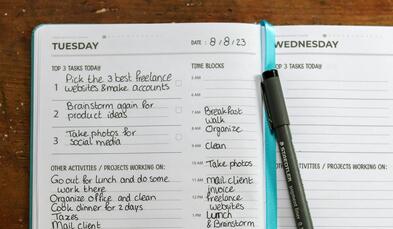 TUESDAY
DATE: 8/8/23
TOP 3 TASKS TODAY
1 Pick the 3 best freelance
websites & make accounts
2 Brainstorm again for
product ideas
3 Take photos for
social media
OTHER ACTIVITIES / PROJECTS WORKING ON:
Go out for lunch and do some
work there
Organize office and clean
Cook dinner for 2 days
Taxes
Mail client
TIME BLOCKS
5 AM
6 AM
7 AM Breakfast
walk
8 AM Organize
9 AM Clean
10 AM Take photos
11 AM Mail client
invoice
12 PM freelance
websites
1 PM Lunch
& Brainstorm
WEDNESDAY
TOP 3 TASKS TODAY
ACTIVITIES / PROJECTS WORKING ON:
STAEDTLER